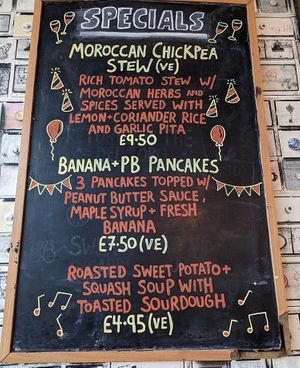 SPECIALS
MOROCCAN CHICKPEA
STEW (VE)
RICH TOMATO STEW W/
MOROCCAN HERBS AND
SPICES SERVED WITH
LEMON+CORIANDER RICE
AND GARLIC PITA
£9.50
BANANA+PB PANCAKES
3 PANCAKES TOPPED W/
PEANUT BUTTER SAUCE,
MAPLE SYRUP + FRESH
BANANA
£7.50 (VE)
ROASTED SWEET POTATO+
SQUASH SOUP WITH
TOASTED SOURDOUGH
£4.95 (VE)